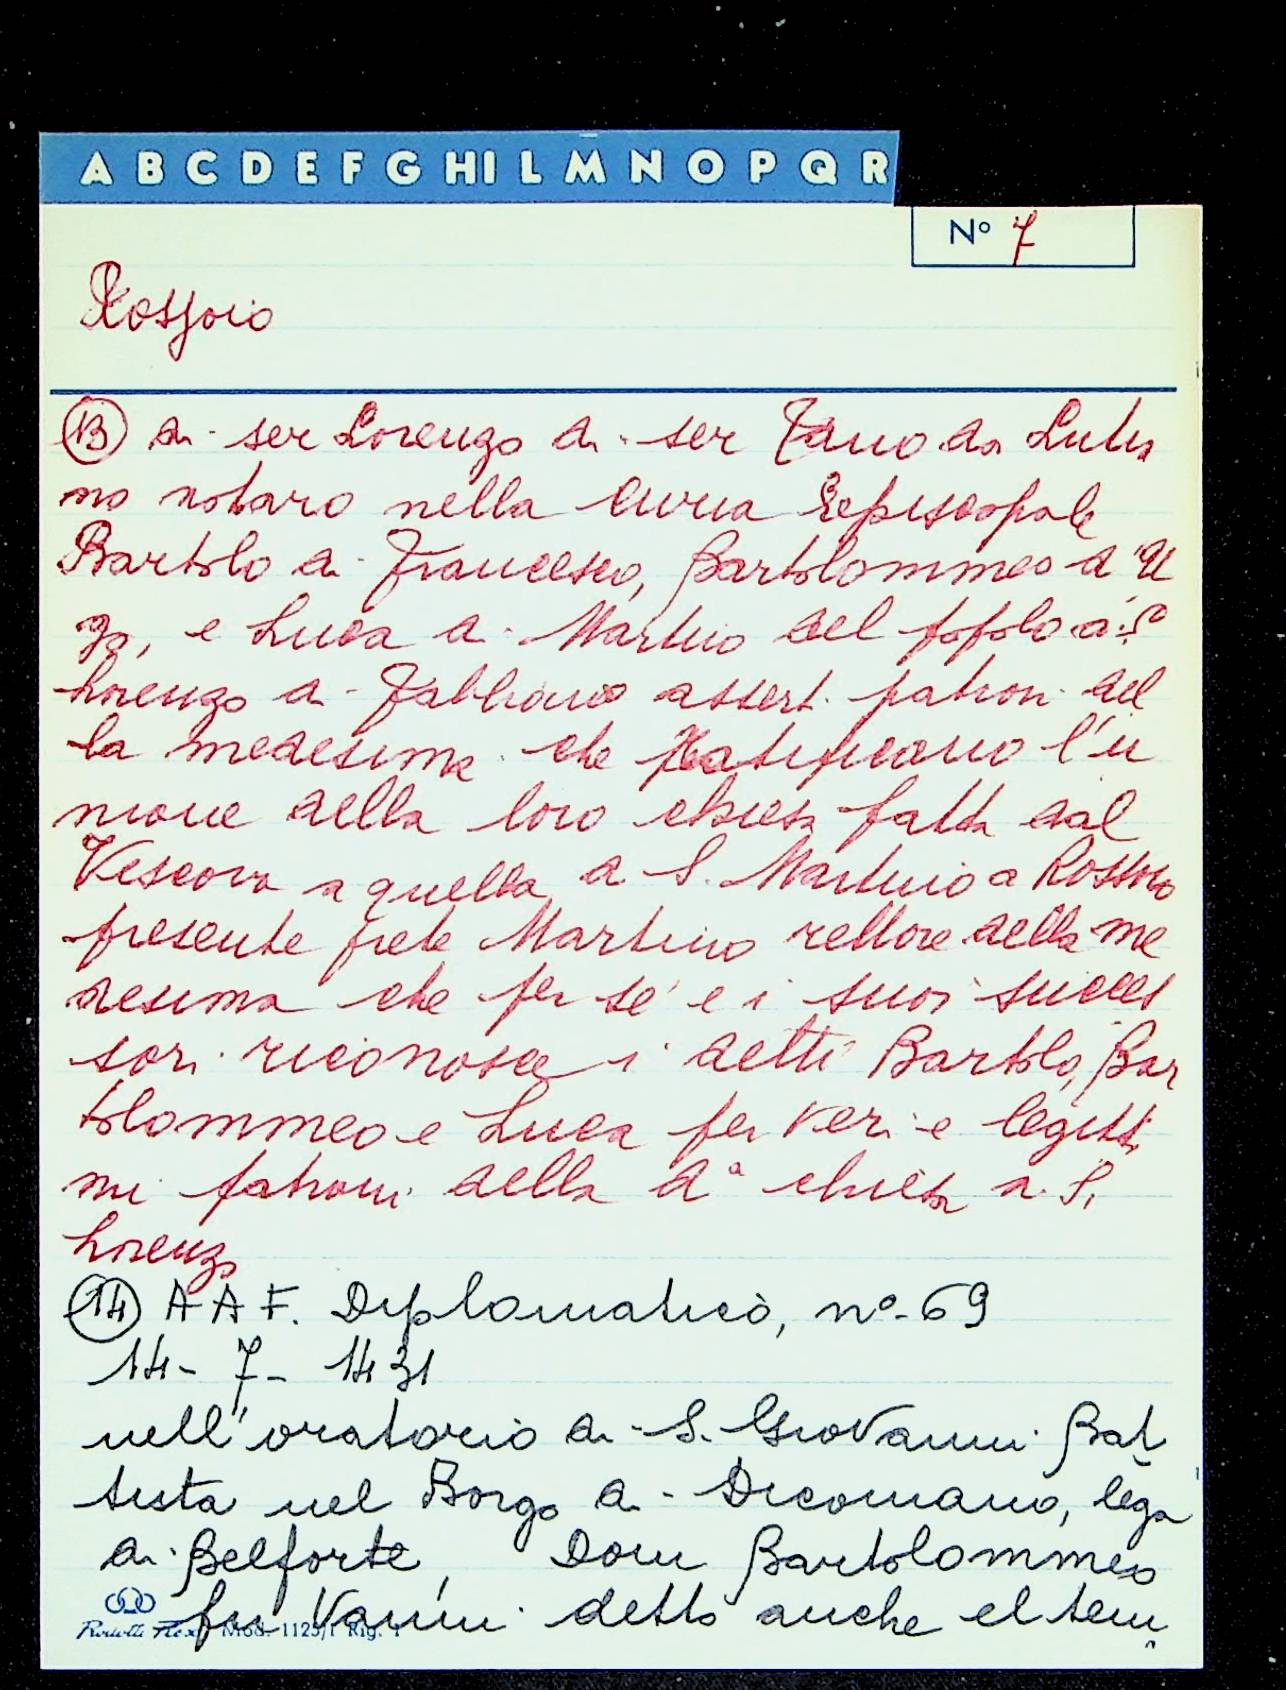 A B C D E F G H I L M N O P Q R
Nº 7
Rossoio
13 di ser Lorenzo di ser Tano da Lutia
no notaro nella Curia Episcopale
Bartolo di Francesco, Bartolommeo d'U
go, e Luca di Martino del popolo di S.
Lorenzo a Fabbiano assert. patroni del
la medesima che ratificano l'u
nione della loro chiesa fatta dal
Vescovo a quella di S. Martino a Rossoio
presente prete Martino rettore della me
desima che per sé e i suoi succes
sori riconosce i detti Bartolo, Bar
tolommeo e Luca per veri e legitti
mi patroni della dª chiesa di S.
Lorenzo
14 A A F. Diplomatico, nº 69
14 - 7 - 1431
nell'oratorio di S. Giovanni Bat
tista nel Borgo di Dicomano, lega
di Belforte, Dom Bartolommeo
fu Vanni detto anche el tem
Mod. 1125/1 Rig. 1